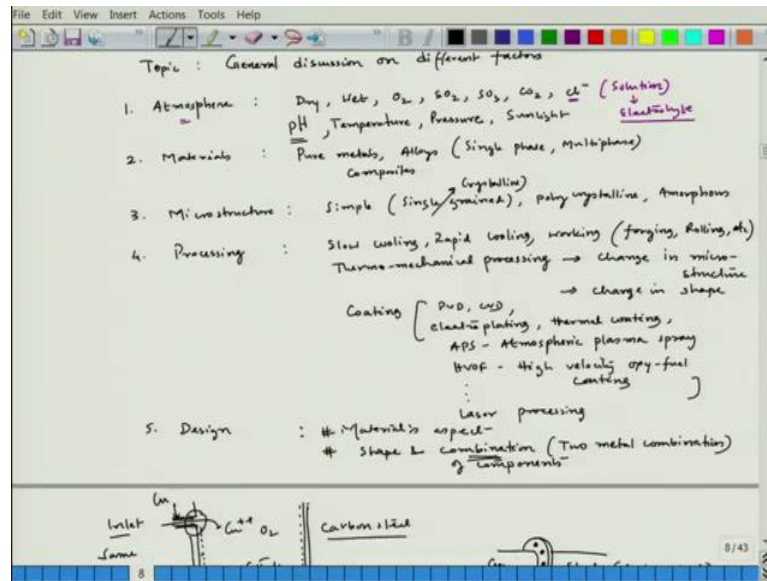 File Edit View Insert Actions Tools Help
B I
Topic : General discussion on different factors
1. Atmosphere : Dry, Wet, O2, SO2, SO3, CO2, Cl⁻ (Solution)
↓ Electrolyte
pH, Temperature, Pressure, Sunlight
2. Materials : Pure metals, Alloys (Single phase, Multiphase)
Composites
(crystalline)
3. Microstructure : Simple (Single grained), poly crystalline, Amorphous
4. Processing : Slow cooling, Rapid cooling, working (forging, Rolling, etc)
Thermo-mechanical processing → change in micro-
structure
→ change in shape
Coating [PVD, CVD,
electroplating, thermal coating,
APS - Atmospheric plasma spray
HVOF - High velocity oxy-fuel
coating
⋮ ]
Laser processing
5. Design : # Material's aspect
# Shape & combination (Two metal combination)
of components
Cu
Inlet Cu++ O2 Carbon steel
Same
8/43
8